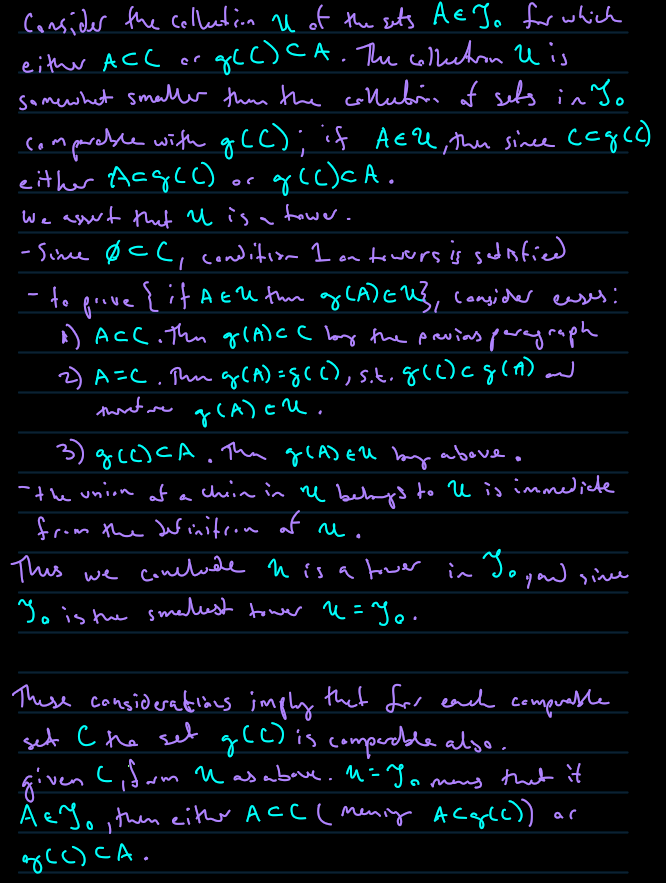 Consider the collection 𝒰 of the sets A ∈ 𝒥₀ for which
either A ⊂ C or g(C) ⊂ A. The collection 𝒰 is
somewhat smaller than the collection of sets in 𝒥₀
comparable with g(C); if A ∈ 𝒰, then since C ⊂ g(C)
either A ⊂ g(C) or g(C) ⊂ A.
We assert that 𝒰 is a tower.
- Since ∅ ⊂ C, condition 1 on towers is satisfied
- to prove {if A ∈ 𝒰 then g(A) ∈ 𝒰}, consider cases:
1) A ⊂ C. Then g(A) ⊂ C by the previous paragraph
2) A = C. Then g(A) = g(C), s.t. g(C) ⊂ g(A) and
therefore g(A) ∈ 𝒰.
3) g(C) ⊂ A. Then g(A) ∈ 𝒰 by above.
- the union of a chain in 𝒰 belongs to 𝒰 is immediate
from the definition of 𝒰.
Thus we conclude 𝒰 is a tower in 𝒥₀, and since
𝒥₀ is the smallest tower 𝒰 = 𝒥₀.
These considerations imply that for each comparable
set C the set g(C) is comparable also.
given C, form 𝒰 as above. 𝒰 = 𝒥₀ means that if
A ∈ 𝒥₀, then either A ⊂ C (meaning A ⊂ g(C)) or
g(C) ⊂ A.